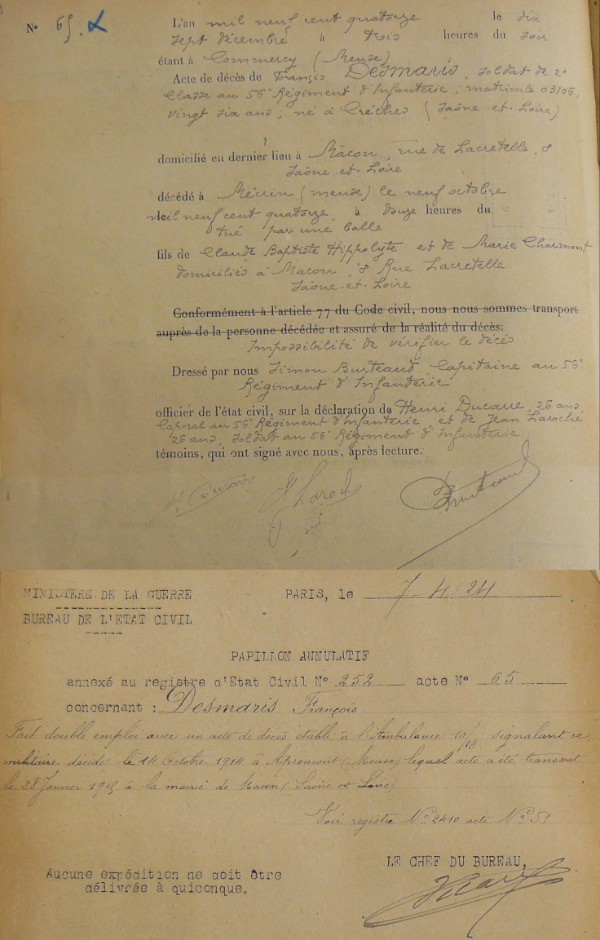 N° 65
L'an mil neuf cent quatorze le dix
sept décembre à trois heures du soir
étant à Commercy (Meuse)
Acte de décès de François Desmaris, soldat de 2e
Classe au 56e Régiment d'Infanterie, matricule 03106,
vingt six ans, né à Crêches (Saône et Loire)
domicilié en dernier lieu à Mâcon, rue de Lacretelle, 8
Saône-et-Loire
décédé à Mécrin (Meuse) le neuf octobre
mil neuf cent quatorze, à douze heures du
tué par une balle
fils de Claude Baptiste Hippolyte et de Marie Charmont
domiciliés à Macon, 8 Rue Lacretelle
Saône-et-Loire
Conformément à l'article 77 du Code civil, nous nous sommes transport
auprès de la personne décédée et assuré de la réalité du décès.
Impossibilité de vérifier le décès
Dressé par nous Simon Burteaud Capitaine au 56e
Régiment d'Infanterie
officier de l'état civil, sur la déclaration de Henri Ducarre, 26 ans,
Caporal au 56e Régiment d'Infanterie et de Jean Laroche
26 ans, soldat au 56e Régiment d'Infanterie
témoins, qui ont signé avec nous, après lecture.
MINISTERE DE LA GUERRE
PARIS, le 7-4-24
BUREAU DE L'ETAT CIVIL
PAPILLON ANNULATIF
annexé au registre d'Etat Civil N° 252 acte N° 65
concernant : Desmaris François
Fait double emploi avec un acte de décès établi à l'Ambulance 10/13 signalant ce
militaire décédé le 14 Octobre 1914 à Apremont (Meuse) lequel acte a été transmis
le 28 Janvier 1915 à la mairie de Macon (Saône et Loire)
Voir registre N° 2410 acte N° 51
LE CHEF DU BUREAU,
Aucune expédition ne doit être
délivrée à quiconque.